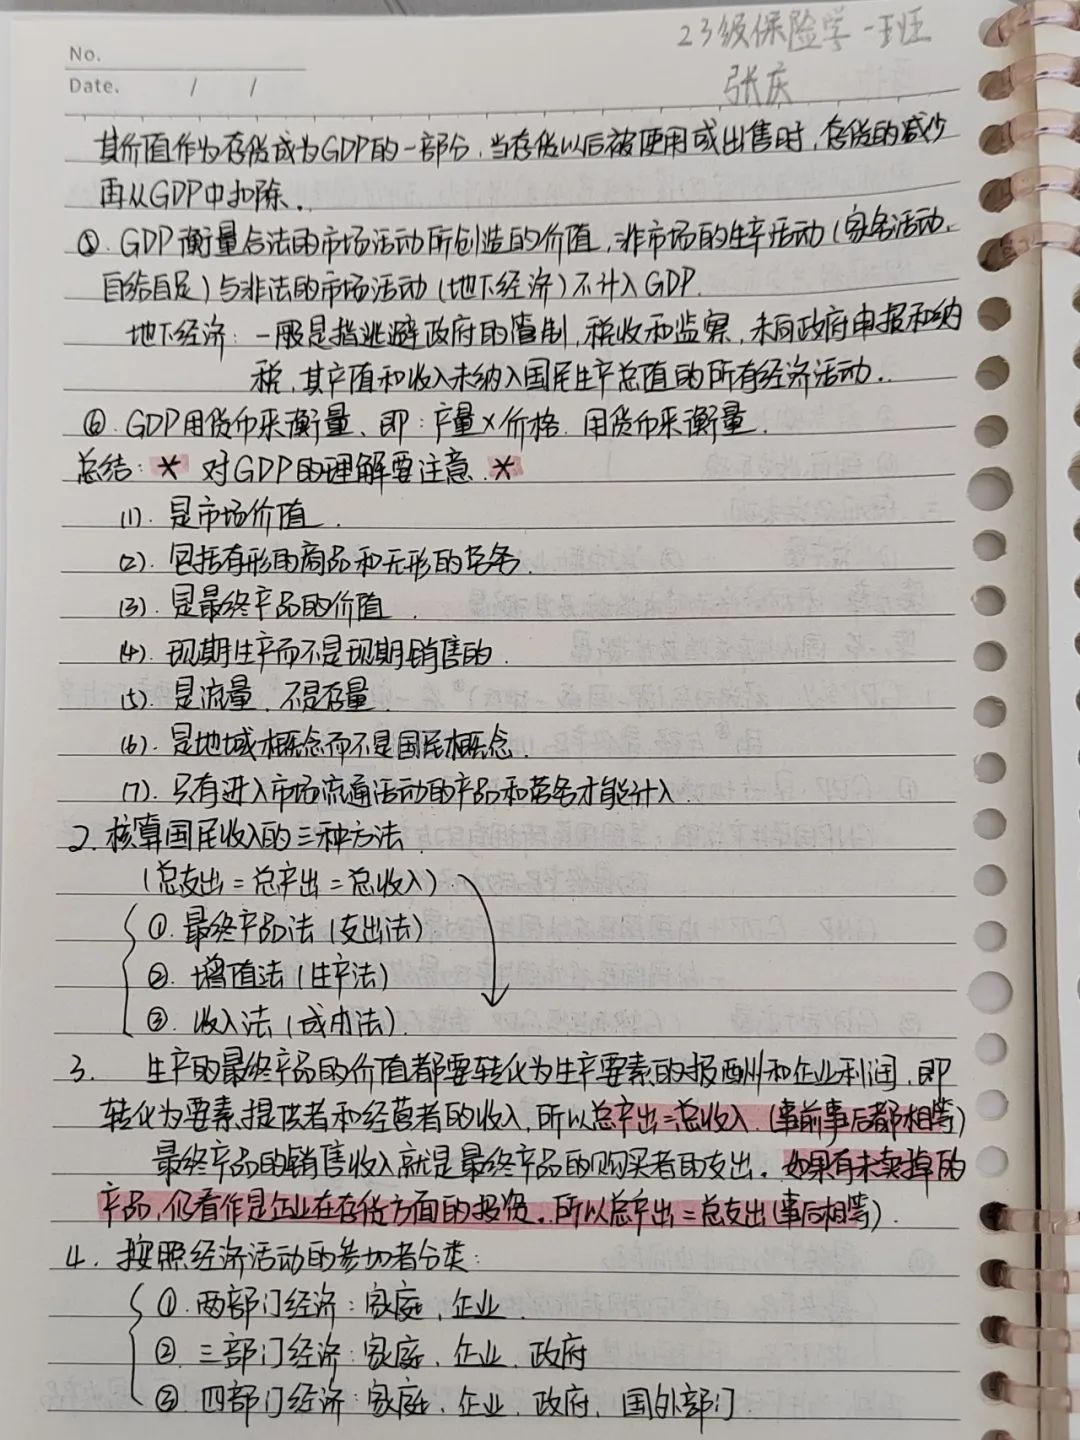 23级保险学一班
张庆
No.
Date. / /
其价值作为存货成为GDP的一部分,当存货以后被使用或出售时,存货的减少
再从GDP中扣除.
⑤. GDP衡量合法的市场活动所创造的价值,非市场的生产活动(家务活动、
自给自足)与非法的市场活动(地下经济)不计入GDP.
地下经济:一般是指逃避政府的管制,税收和监察,未向政府申报和纳
税,其产值和收入未纳入国民生产总值的所有经济活动.
⑥. GDP用货币来衡量、即:产量×价格.用货币来衡量.
总结:* 对GDP的理解要注意.*
(1). 是市场价值.
(2). 包括有形的商品和无形的劳务.
(3). 是最终产品的价值
(4). 现期生产而不是现期销售的.
(5). 是流量、不是存量
(6). 是地域概念而不是国民概念.
(7). 只有进入市场流通活动的产品和劳务才能计入.
2. 核算国民收入的三种方法.
(总支出=总产出=总收入).
①. 最终产品法(支出法)
②. 增值法(生产法)
③. 收入法(成本法).
3. 生产的最终产品的价值都要转化为生产要素的报酬和企业利润,即
转化为要素提供者和经营者的收入,所以总产出=总收入.(事前事后都相等)
最终产品的销售收入就是最终产品的购买者的支出.如果有未卖掉的
产品,仍看作是企业在存货方面的投资.所以总产出=总支出(事后相等).
4. 按照经济活动的参加者分类:
①. 两部门经济:家庭、企业.
② 三部门经济:家庭、企业、政府
③. 四部门经济:家庭、企业、政府、国外部门.